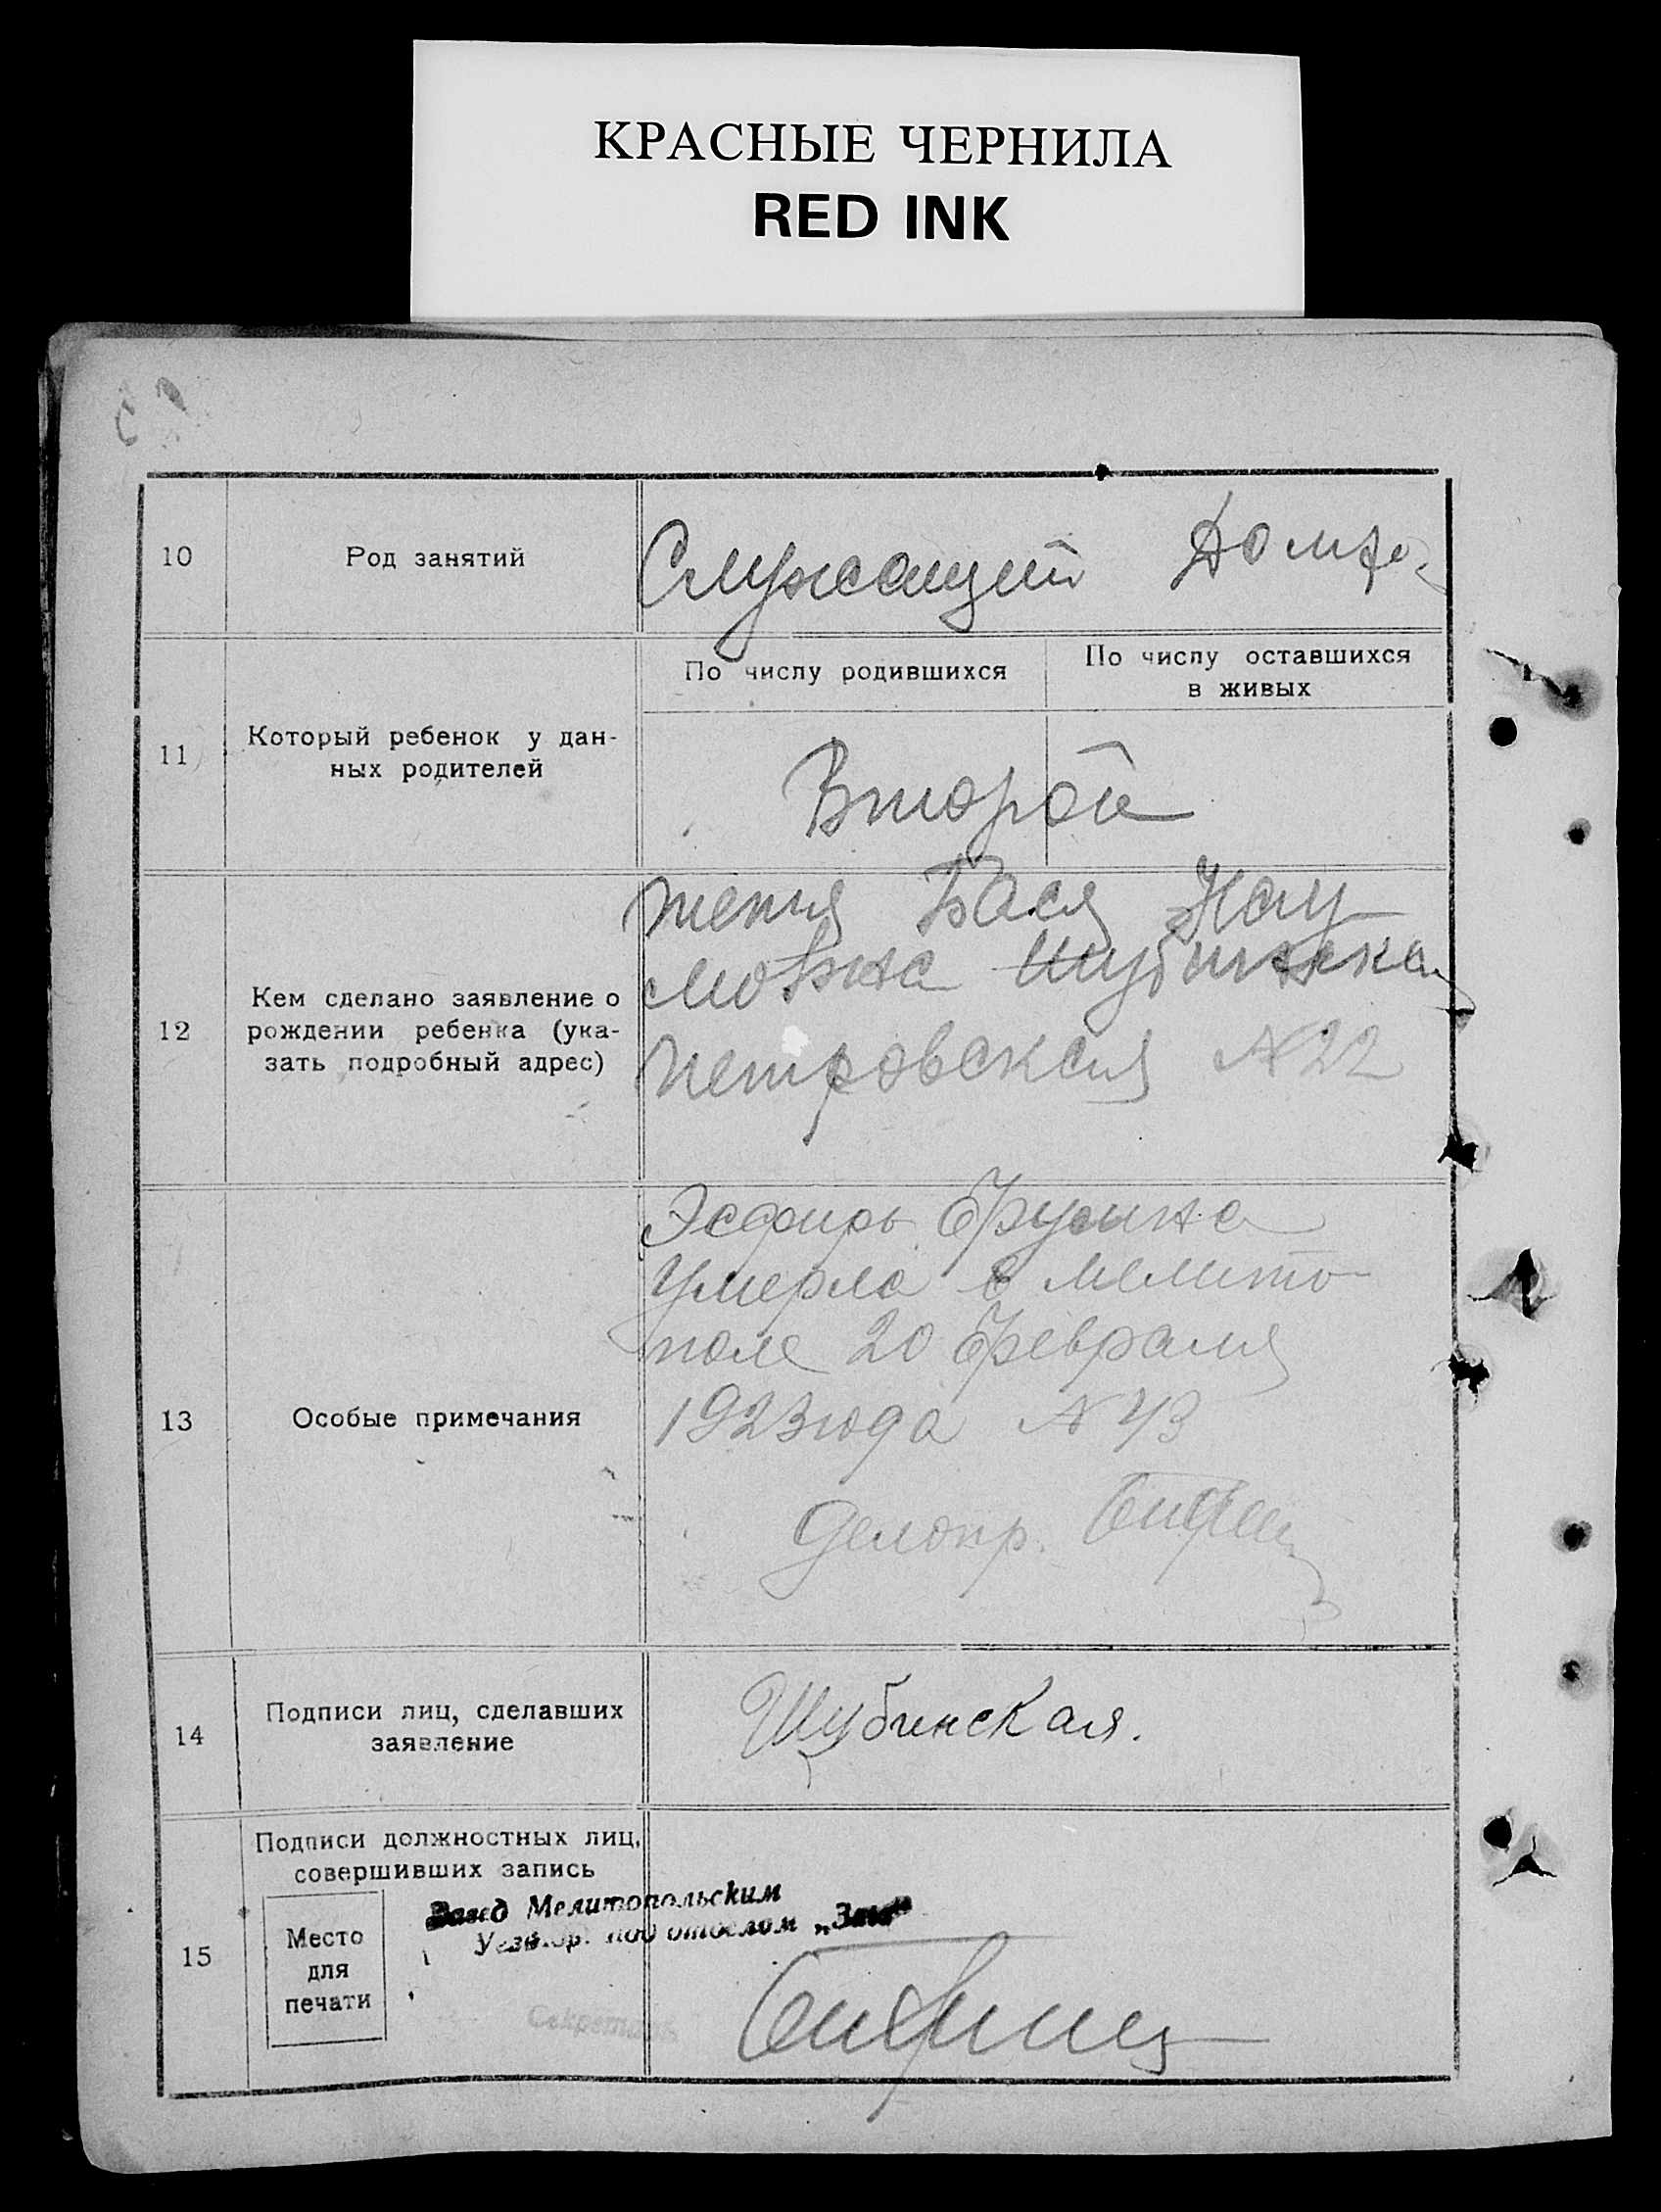 КРАСНЫЕ ЧЕРНИЛА
RED INK
10 Род занятий Служащий Домхо.
11 Который ребенок у дан-
ных родителей
По числу родившихся
По числу оставшихся
в живых
Второй
12 Кем сделано заявление о
рождении ребенка (ука-
зать подробный адрес)
Бася Нау
мовна Шубинская
Петровская N 22
13 Особые примечания
Эсфирь Фрумна
Умерла в Мелито
поле 20 Февраля
1923 года N 43
Делопр.
14 Подписи лиц, сделавших
заявление
Шубинская.
15 Подписи должностных лиц,
совершивших запись
Место
для
печати
Завед Мелитопольским
под отделом „Загс"
Секретарь